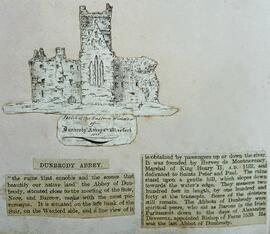 Dunbrody Abbey Wexford
DUNBRODY ABBEY.
"the ruins that ennoble and the scenes that
beautify our native land" the Abbey of Dun-
brody, situated close to the meeting of the Suir,
Nore, and Barrow, ranks with the most pic-
turesque. It is situated on the left bank of the
Suir, on the Wexford side, and a fine view of it
is obtained by passengers up or down the river.
It was founded by Hervey de Montmorency,
Marshal of King Henry II., A.D. 1182, and
dedicated to Saints Peter and Paul. The ruins
stand upon a gentle hill, which slopes down
towards the water's edge. They measure two
hundred feet in length, by one hundred and
forty at the transepts. Some of the cloisters
still remain. The Abbots of Dunbrody were
spiritual peers, who sat as Barons in the Irish
Parliament down to the days of Alexander
Devereux, appointed Bishop of Ferns 1539. He
was the last Abbot of Dunbrody.